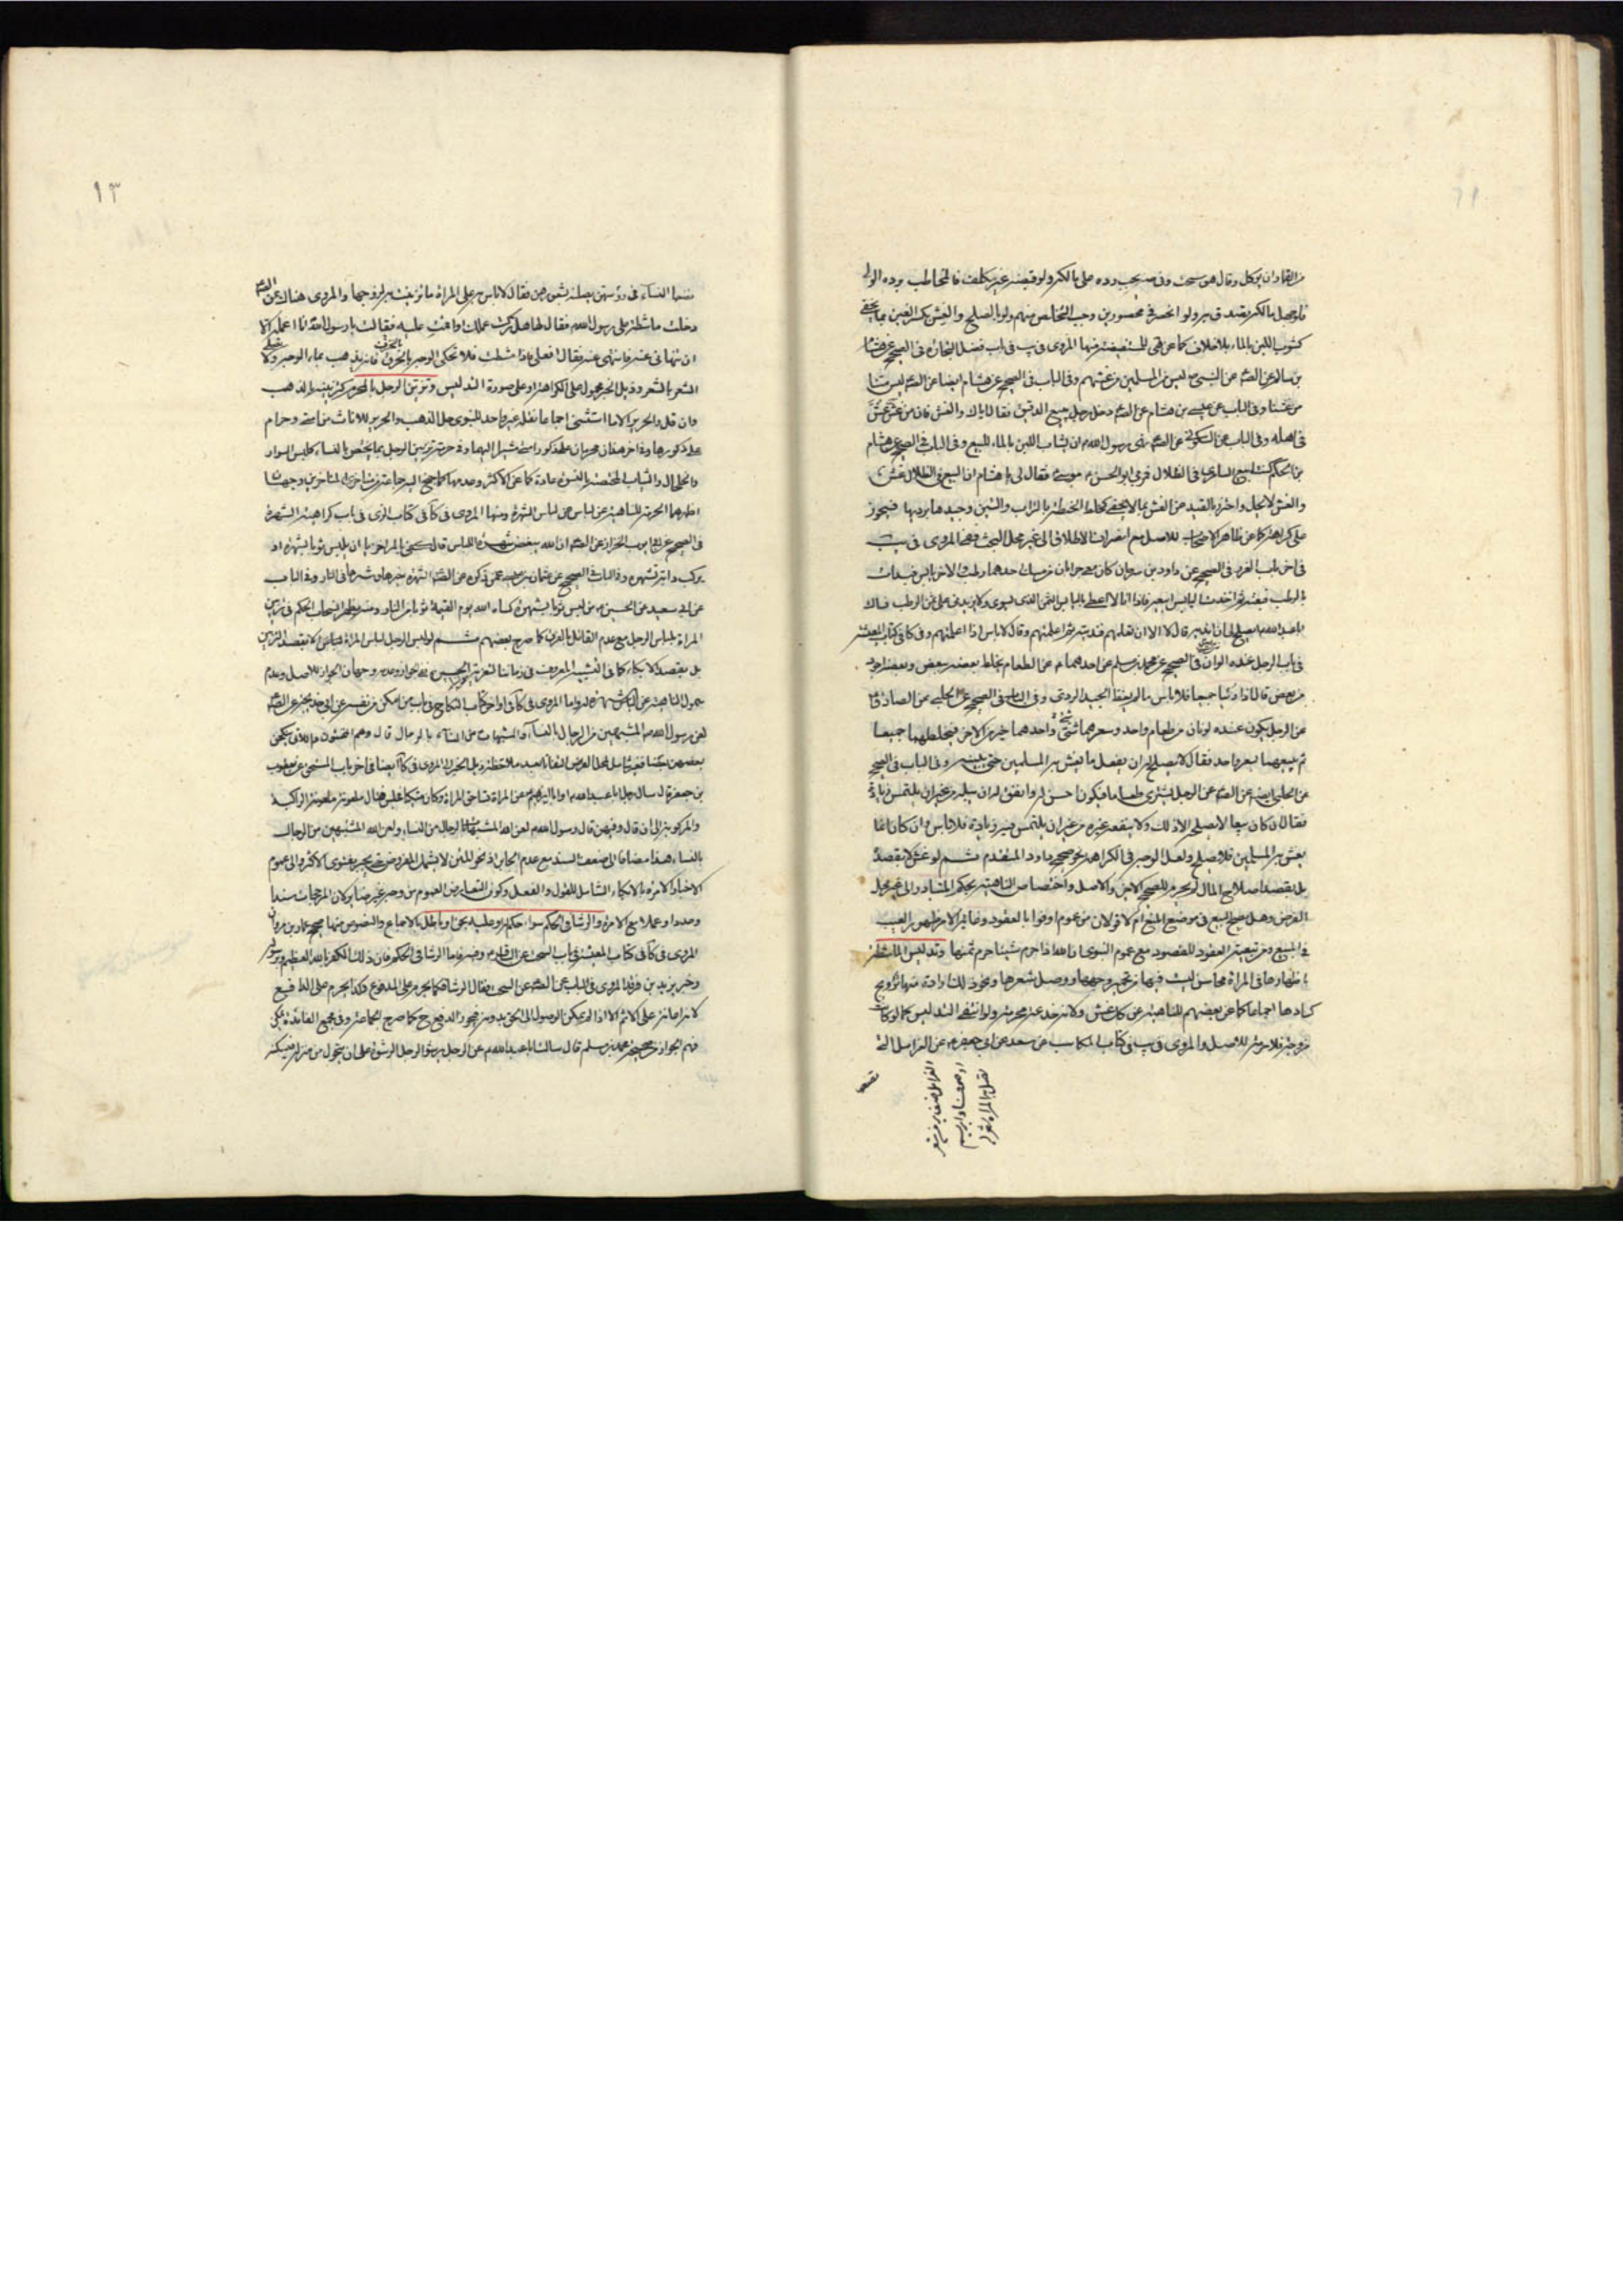 من القمار ان يؤكل وقال هو سحت وفى يجب رده على مالكه ولو قبضه غير مكلف فالمخاطب برده الولى
فلو جهل مالكه تصدق به ولو انحصر فى محصورين وجب التخلص منهم ولو بالصلح والغش بكسر الغين بما يخفى
كشوب اللبن بالماء بلا خلاف كما عن للمستفيضة منها المروى فى باب فى الصحيح عن هشام
بن سالم عن الصم عن النبى ص ليس من المسلمين من غشهم وفى الباب فى الصحيح عن هشام ايضا عن الصم ليس منا
من غشنا وفى الباب عن بن هشام عن الصم دخل رجل يبيع الدقيق فقال اياك والغش فان من غش غش
فى اهله وفى الباب عن السكونى عن الصم نهى رسول الله ص ان يشاب اللبن بالماء للبيع وفى الباب فى الصحيح عن هشام
بن الحكم كنت ابيع السابرى فى الظلال فمر بى ابو الحسن موسى فقال لى يا هشام ان البيع فى الظلال غش
والغش لا يحل واحترز بالقيد عن الغش بما لا يخفى كخلط الحنطة بالتراب والتبن وجيدها برديها فيجوز
على كراهة كما عن ظاهر الاصحاب للاصل مع انصراف الاطلاق الى غير محل البحث المروى فى
فى اخر باب فى الصحيح عن داود بن سرحان كان معى جرابان من مسك احدهما رطب والاخر يابس فبدات
بالرطب فبعته ثم اخذت اليابس ابيعه فاذا انا لا اعطى باليابس الثمن الذى يسوى ولا يزيدونى على ثمن الرطب فسالت
ابا عبد الله ايصلح لى ان انديه قال لا الا ان تعلمهم فنديته ثم اعلمتهم وقال لا باس اذا اعلمتهم وفى كا فى كتاب المعيشة
فى باب الرجل عنده الوان فى الصحيح عن محمد بن مسلم عن احدهما ع عن الطعام يخلط بعضه ببعض وبعضه اجود
من بعض قال اذا رئيا جميعا فلا باس ما لم يغط الجيد الردى وفى الباب فى الصحيح عن الحلبى عن الصادق ع
عن الرجل يكون عنده لونان من طعام واحد وسعرهما شتى واحدهما خير من الاخر فيخلطهما جميعا
ثم يبيعهما بسعر واحد فقال لا يصلح له ان يفعل ما يغش به المسلمين حتى يبينه وفى الباب فى الصحيح
عن الحلبى ايضا عن الصم عن الرجل يشترى طعاما فيكون احسن له وانفق له ان يبله من غير ان يلتمس زيادة
فقال ان كان بيعا لا يصلحه الا ذلك ولا ينفقه غيره من غير ان يلتمس فيه زيادة فلا باس وان كان انما
يغش به المسلمين فلا يصلح ولعل الوجه فى الكراهة نحو صحيح داود المتقدم ثم لو غش لا بقصده
بل بقصد اصلاح المال لم يحرم للصحيح الاخير والاصل واختصاص الناهية بحكم المتبادر الى غير محل
الفرض وهل يصح البيع فى موضع المنع ام لا قولان من عموم اوفوا بالعقود وغايته الامر ظهور العيب
فى المبيع ومن تبعية العقود للمقصود مع عموم النبوى ان الله اذا حرم شيئا حرم ثمنها وتدليس الماشطة
باظهارها فى المراة محاسن ليست فيها من تحمير وجهها ووصل شعرها ونحو ذلك لارادة تزويج
كسادها اجماعا كما عن بعضهم للناهية عن كل غش ولو انتفى التدليس كما لو كانت
مزوجة فلا حرمة للاصل والمروى فى كتاب المكاسب عن سعد عن ابى جعفر ع عن القرامل التى
تضعها

١٣
تضعها النساء فى رؤسهن يصلنه بشعورهن فقال لا باس به على المراة ما تزينت به لزوجها والمروى هناك عن الصم
دخلت ماشطة على رسول الله ص فقال لها هل تركت عملك او اقمت عليه فقالت يا رسول الله انا اعمله الا
ان تنهانى عنه فانتهى عنه فقال افعلى فاذا مشطت فلا تحكى الوجه بالخرق فانه يذهب بماء الوجه ولا تصلى
الشعر بالشعر وذيل الخبر محمول على الكراهة او على صورة التدليس وتزيين الرجل بالمحرم كزينته بالذهب
وان قل والحرير الا ما استثنى اجماعا نقله غير واحد للنبوى حل الذهب والحرير للاناث من امتى وحرام
على ذكورها وفى اخر هذان محرمان على ذكور امتى مشيرا اليهما وفى حرمة تزيين الرجل بما يختص بالنساء كلبس السوار
والخلخال والثياب المختصة بالنسوة عادة كما عن الاكثر وعدمها كما جماعة من متاخرى المتاخرين وجهان
اظهرهما الحرمة للناهية عن لباس الشهرة ومنها المروى فى كا فى كتاب الزى فى باب كراهية الشهرة
فى الصحيح عن ابى ايوب الخزاز عن الصم ان الله يبغض شهرة اللباس قال كفى بالمرء خزيا ان يلبس ثوبا يشهره او
يركب دابة تشهره وفى الباب فى الصحيح عن عثمان بن عيسى عمن ذكره عن الصم الشهرة خيرها وشرها فى النار وفى الباب
عن ابى سعيد عن الحسين ع من لبس ثوبا يشهره كساه الله يوم القيمة ثوبا من النار ومنه يظهر انسحاب الحكم فى تزيين
المراة بلباس الرجل مع عدم القائل بالفرق كما صرح بعضهم ثم لو لبس الرجل لباس المراة لا بقصد التزيين
بل بقصد الابكاء كما فى التشبيه المعروف فى زماننا لتعزية الحسين ع ففى جوازه وعدمه وجهان الجواز للاصل وعدم
شمول الناهية عن لباس الشهرة له واما المروى فى كا فى اواخر كتاب النكاح فى باب من امكن من نفسه عن ابى خديجة عن الصم
لعن رسول الله ص المتشبهين من الرجال بالنساء والمتشبهات من النساء بالرجال قال وهم المخنثون واللاتى ينكحن
بعضهن بعضا ملاحظة ذيل الخبر المروى فى كا ايضا فى اخر باب السحق عن يعقوب
بن جعفر قال سال رجل ابا عبد الله او ابا ابراهيم ع عن المراة تساحق المراة وكان متكئا فجلس فقال ملعونة ملعونة الراكبة
والمركوبة الى ان قال وفيهن قال رسول الله ص لعن الله المتشبهات بالرجال من النساء ولعن الله المتشبهين من الرجال
بالنساء هذا مضافا الى ضعف السند مع عدم الجابر اذ نحو المتن لا يشمل المفروض حتى يجبر بفتوى الاكثر والى عموم
الاخبار الامرة بالابكاء الشامل للقول والفعل وكون التعارض العموم من وجه غير ضاير لكان المرجحات سندا
وعددا وعملا مع الامرة والرشا فى الحكم سواء حكم له او عليه بحق او باطل بالاجماع والنصوص منها صحيح عمار بن مروان
المروى فى كا فى كتاب المعيشة فى باب السحت عن الباقر ع وفيه فاما الرشا فى الحكم فان ذلك الكفر بالله العظيم وبرسوله
وخبر يزيد بن فرقد المروى فى الباب عن الصم عن السحت فقال الرشا فكما يحرم على المدفوع وكذا يحرم على الدافع
لانه اعانة على الاثم الا اذا لم يمكن الوصول الى الحق بدونه فيجوز الدفع ح كما صرح به جماعة وفى مجمع الفائدة
نعم الجواز من صحيح محمد بن مسلم قال سالت ابا عبد الله ع عن الرجل يرشو الرجل الرشوة على ان يتحول من منزله فيسكنه